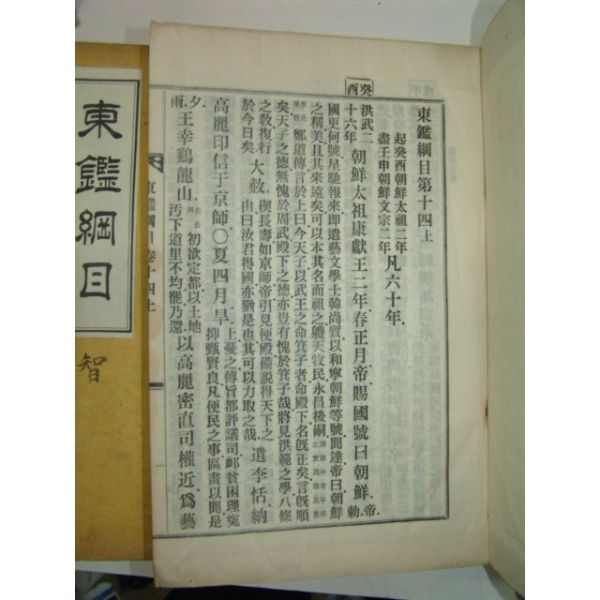 東鑑綱目第十四上
起癸酉朝鮮太祖二年
盡壬申朝鮮文宗二年
凡六十年
癸酉
洪武二十六年
朝鮮太祖康獻王二年春正月帝賜國號曰朝鮮
帝勅
國更何號星馳報來即遣藝文學士韓尚質以和寧朝鮮等號聞達帝曰朝鮮
之稱美且其來遠矣可以本其名而祖之軆天牧民永昌後嗣
鄭道傳言於上曰今天子以武王之命箕子者命殿下名旣正矣言旣順
矣天子之德無愧於周武殿下之德亦豈有愧於箕子哉將見洪範之學八條
之敎復行於今日矣
大赦
由曰汝君得國亦猶是也其可以力取之哉
遣李恬納
高麗印信于京師〇夏四月旱
上憂之傳旨都評議司郵貧困理寃
抑甄賢良凡便民之事區畫以聞是
夕雨
王幸鷄龍山
初欲定都以土地
汚下道里不均罷乃還
以高麗密直司權近爲藝
東鑑綱目卷十四上
東鑑綱目
智